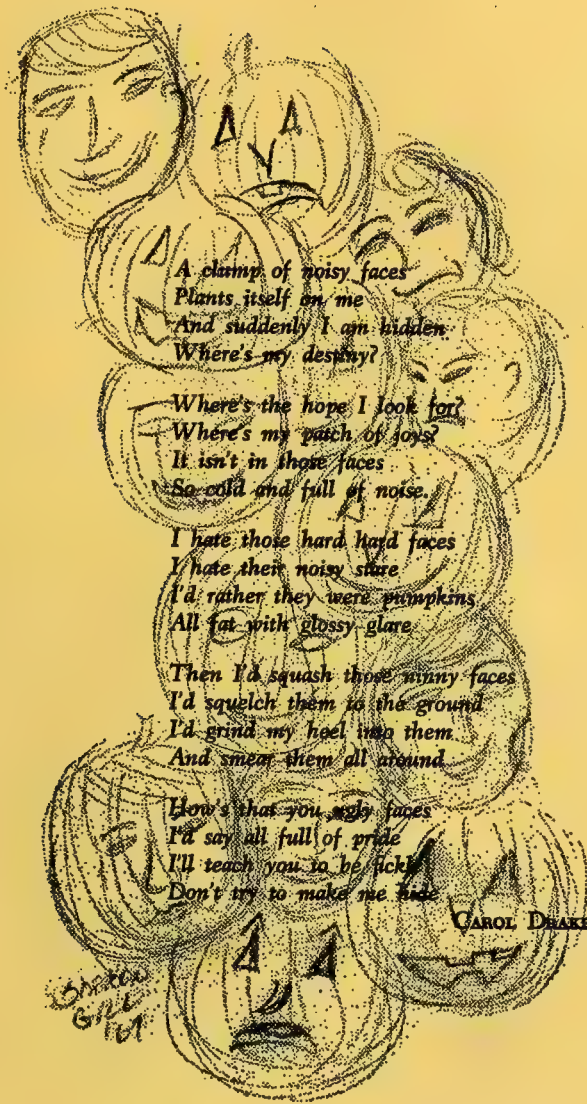 A clump of noisy faces
Plants itself on me
And suddenly I am hidden
Where's my destiny?

Where's the hope I look for?
Where's my patch of joys?
It isn't in those faces
So cold and full of noise.

I hate those hard hard faces
I hate their noisy stare
I'd rather they were pumpkins
All fat with glossy glare

Then I'd squash those ninny faces
I'd squelch them to the ground
I'd grind my heel into them
And smear them all around

How's that you ugly faces
I'd say all full of pride
I'll teach you to be fickle
Don't try to make me hide
CAROL DRAKE
Gill
'67